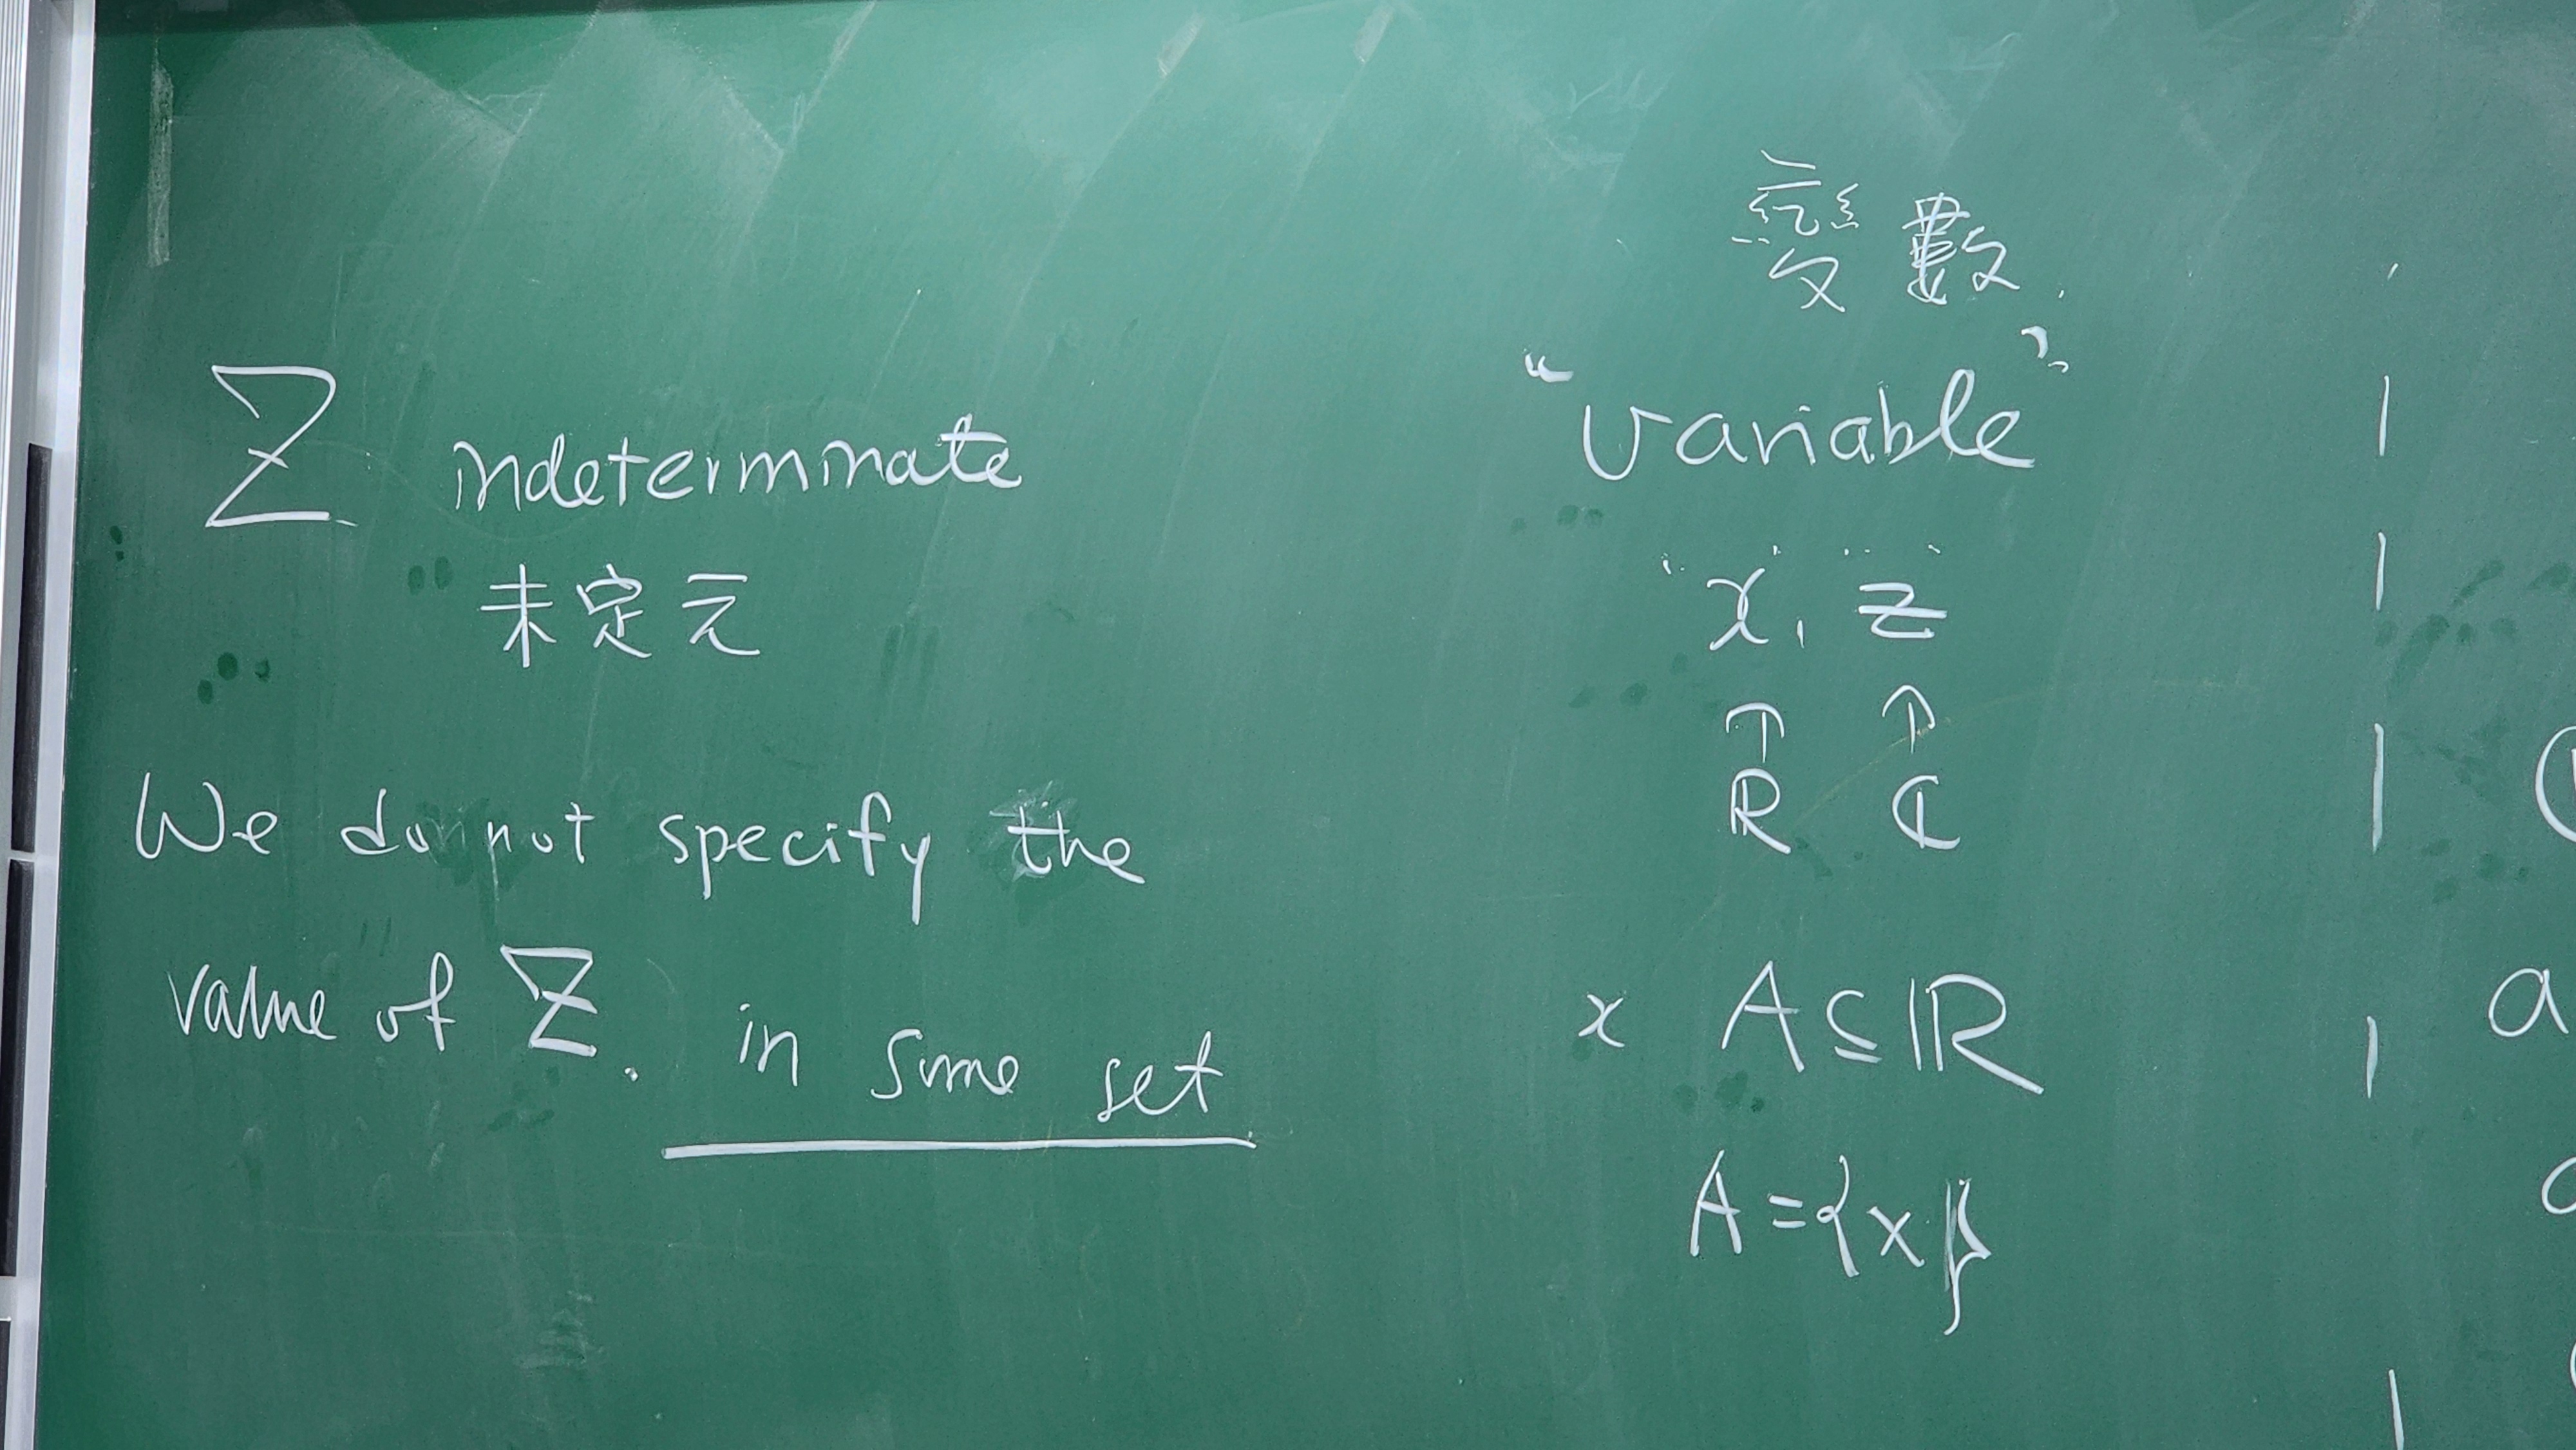 Z indeterminate
未定元
We do not specify the
value of Z. in some set
變數.
"variable"
"x", "z"
↑ ↑
ℝ ℂ
x A ⊆ ℝ
A = {x}